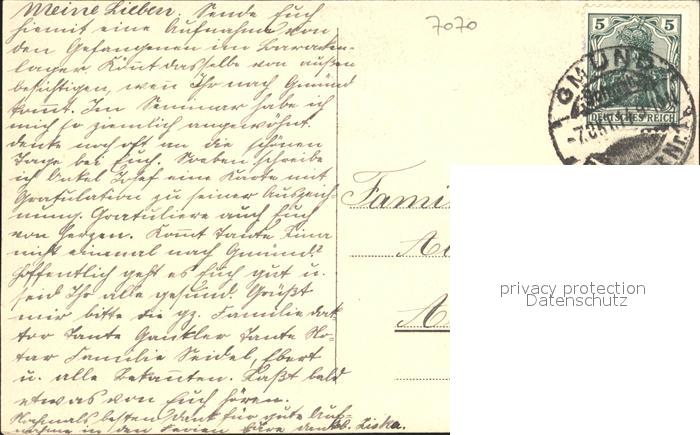 Meine Lieben. Sende Euch
hiermit eine Aufnahme von
den Gefangenen im Baracken-
lager. Könnt dasselbe von außen
besichtigen, wen Ihr nach Gmünd
kommt. Im Seminar habe ich
mich so ziemlich angewöhnt.
denke noch oft an die schönen
Tage bei Euch. Soeben schreibe
ich Onkel Josef eine Karte mit
Gratulation zu seiner Auszeich-
nung. Gratuliere auch Euch
von Herzen. Kommt Tante Lina
nicht einmal nach Gmünd?
Hoffentlich geht es Euch gut u.
seid Ihr alle gesund. Grüßt
mir bitte die gz. Familie dok-
tor Tante Gankler Tante No-
tar Familie Seidel, Ebert
u. alle Bekannten. Laßt bald
etwas von Euch hören.
Nochmals besten Dank für gute Auf-
nahme in den Ferien Eure dankb. Liska.
7070
5 5
DEUTSCHES REICH
GMÜND
Famil
A
privacy protection
Datenschutz